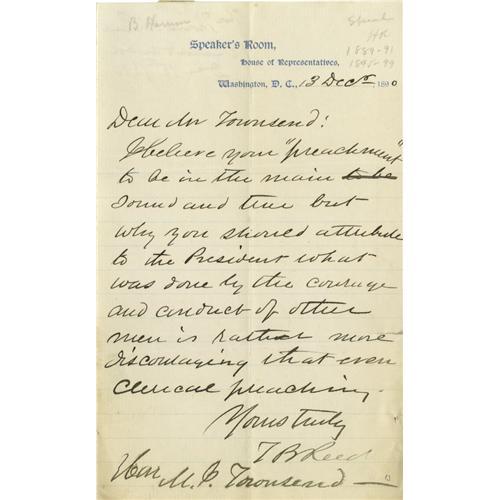 B Harrison
Speak
HR
1889-91
1895-99
Speaker's Room,
House of Representatives,
Washington, D. C., 13 Decr, 1890
Dear Mr Townsend:
I believe your "preachment"
to be in the main to be
sound and true but
why you should attribute
to the President what
was done by the courage
and conduct of other
men is rather more
discouraging that even
clerical preaching.
Yours truly
T B Reed
Hon M. P. Townsend —